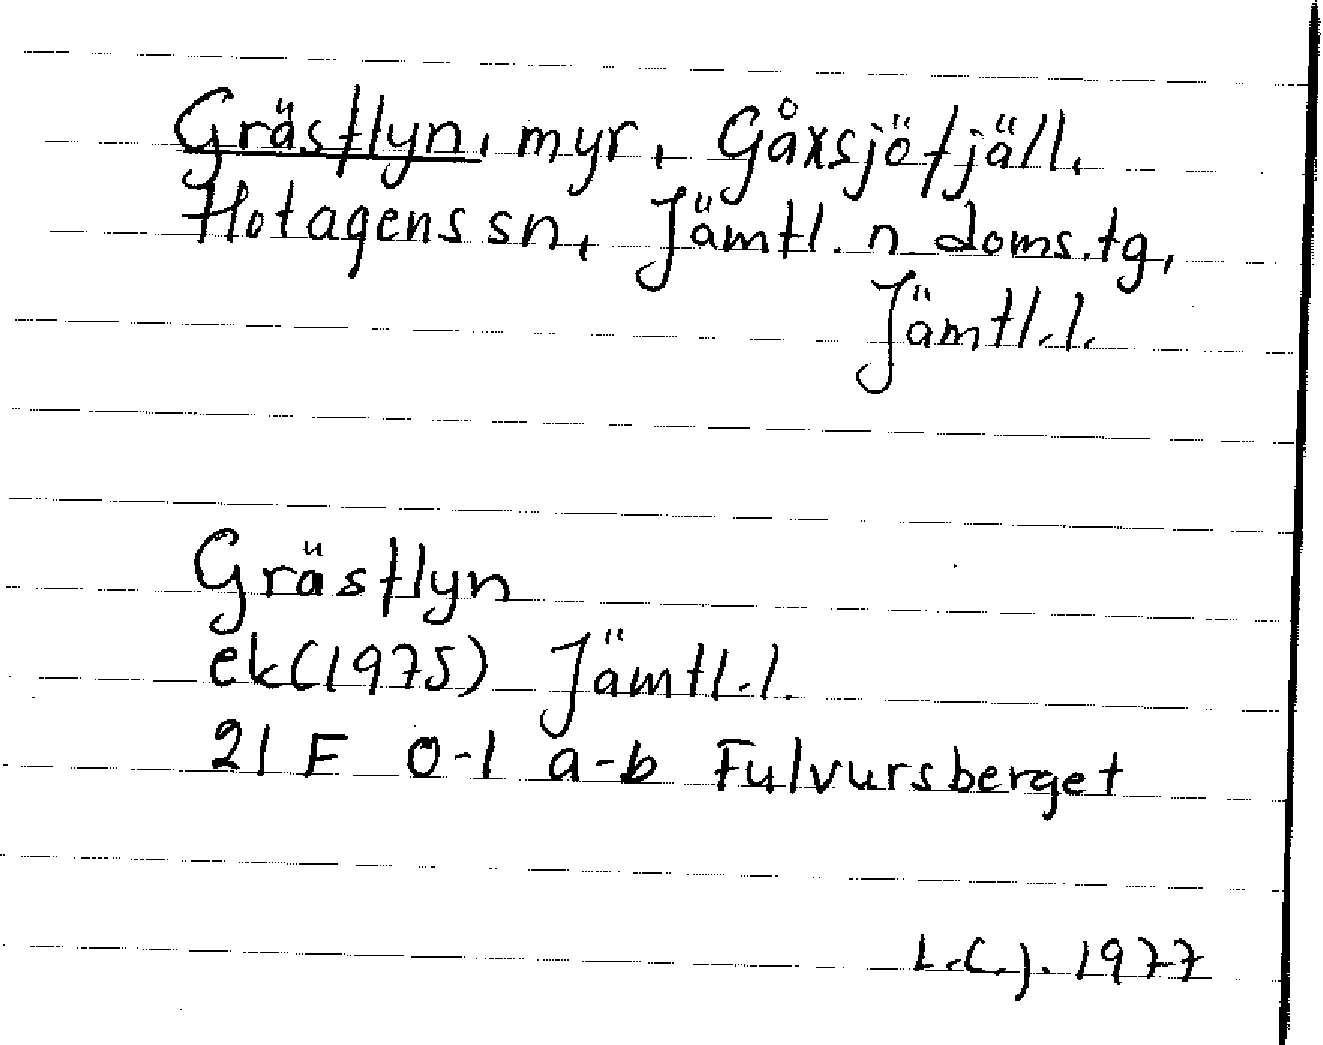 Gräsflyn, myr, Gåxsjöfjäll,
Hotagens sn, Jämtl. n doms.tg,
Jämtl.l.
Gräsflyn
ek(1975) Jämtl.l.
21 F 0-1 a-b Fulvursberget
L.C.J. 1977